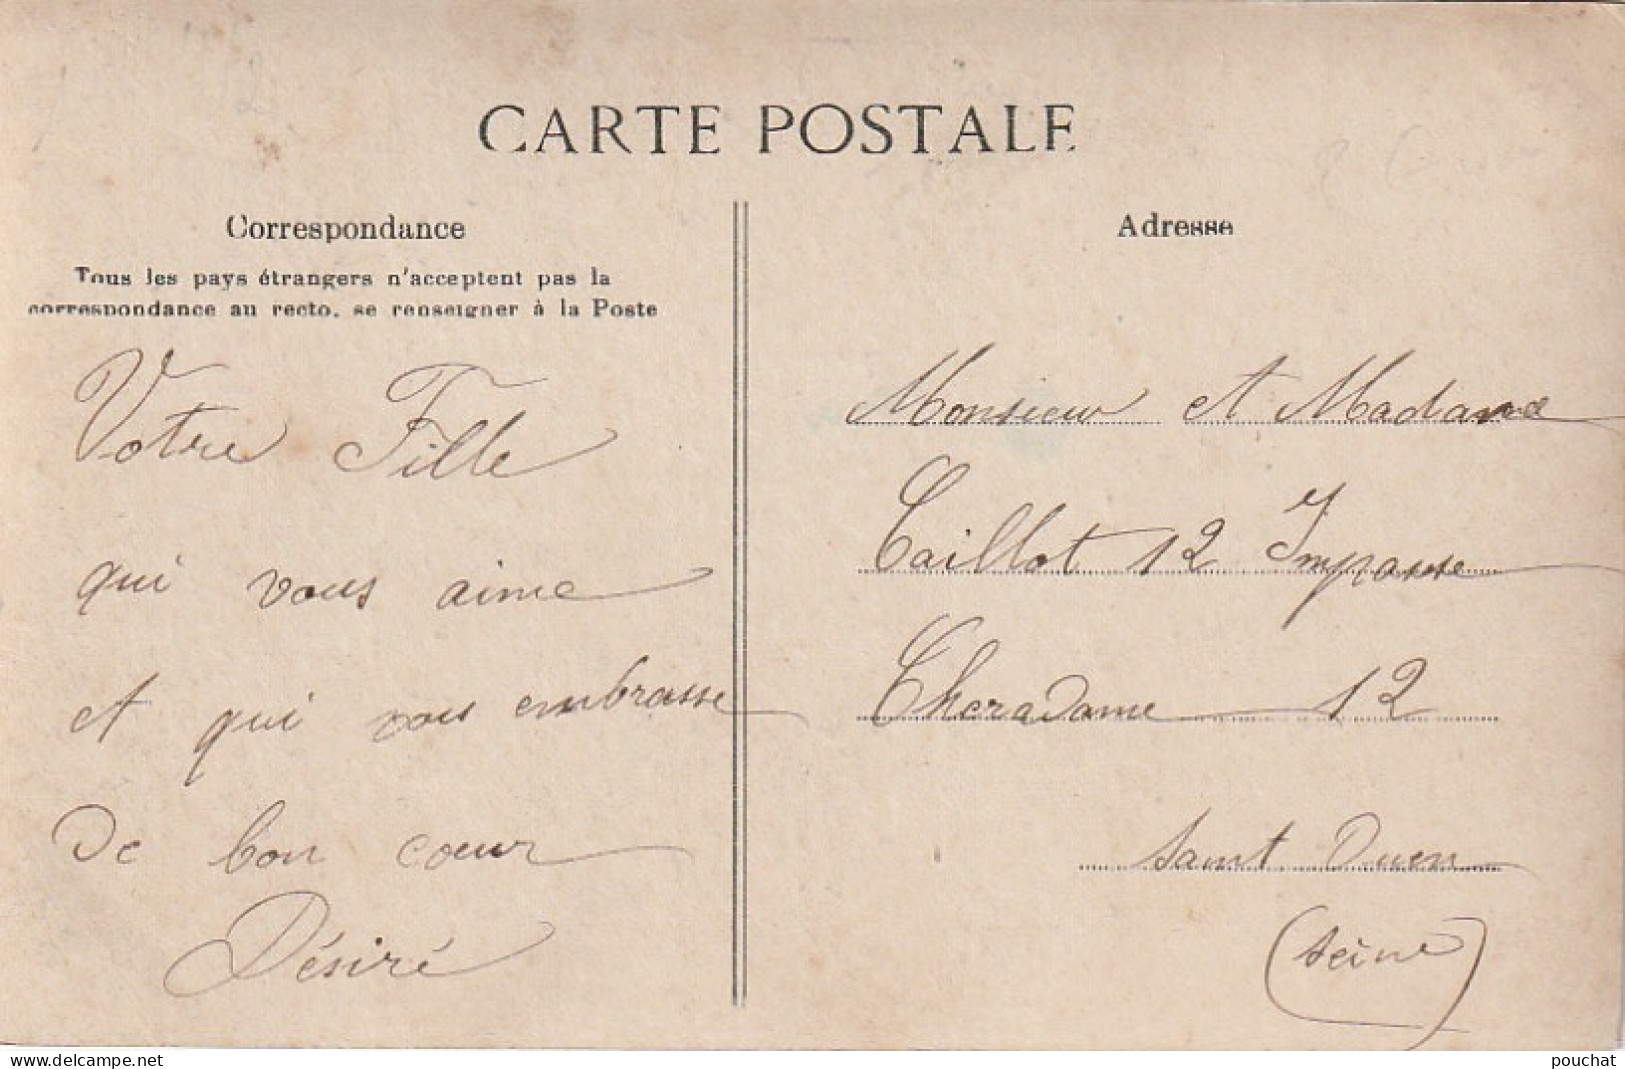 CARTE POSTALE
Correspondance
Tous les pays étrangers n'acceptent pas la
correspondance au recto, se renseigner à la Poste
Votre Fille
qui vous aime
et qui vous embrasse
De bon cœur
Désiré
Adresse
Monsieur et Madame
Caillot 12 Impasse
Cheradame 12
Saint Ouen
(Seine)
www.delcampe.net
pouchat